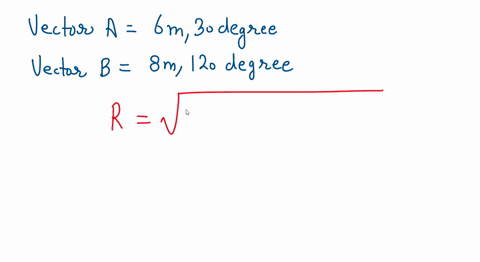 Vector A = 6m, 30 degree
Vector B = 8m, 120 degree
R = √